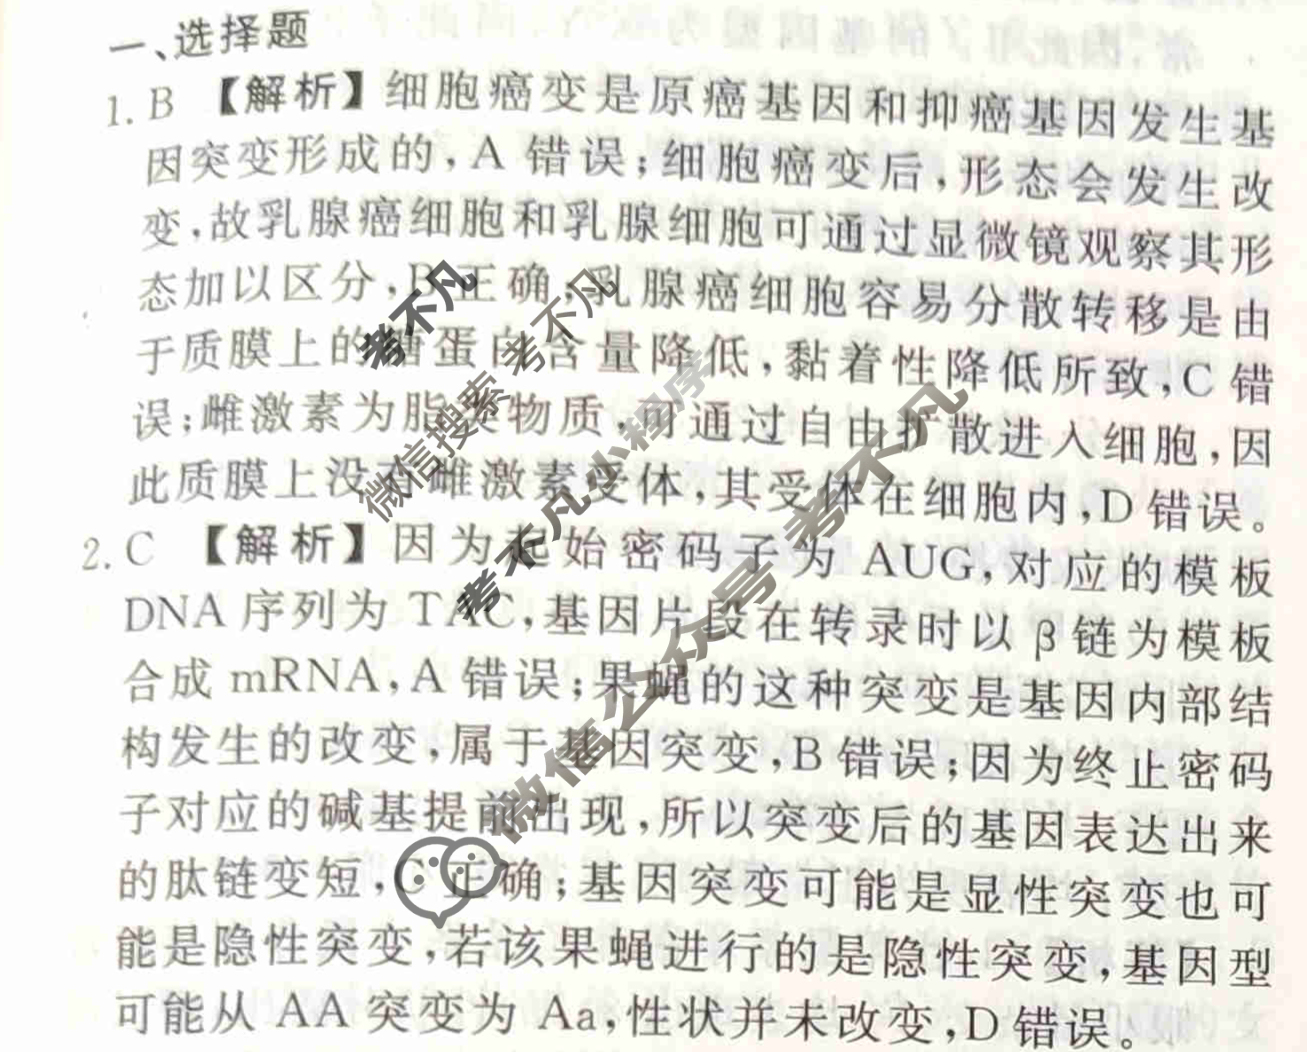 一、选择题
1. B 【解析】细胞癌变是原癌基因和抑癌基因发生基
因突变形成的,A 错误;细胞癌变后,形态会发生改
变,故乳腺癌细胞和乳腺细胞可通过显微镜观察其形
态加以区分,B 正确;乳腺癌细胞容易分散转移是由
于质膜上的糖蛋白含量降低,黏着性降低所致,C 错
误;雌激素为脂类物质,可通过自由扩散进入细胞,因
此质膜上没有雌激素受体,其受体在细胞内,D 错误。
2. C 【解析】因为起始密码子为 AUG,对应的模板
DNA 序列为 TAC,基因片段在转录时以 β 链为模板
合成 mRNA,A 错误;果蝇的这种突变是基因内部结
构发生的改变,属于基因突变,B 错误;因为终止密码
子对应的碱基提前出现,所以突变后的基因表达出来
的肽链变短,C 正确;基因突变可能是显性突变也可
能是隐性突变,若该果蝇进行的是隐性突变,基因型
可能从 AA 突变为 Aa,性状并未改变,D 错误。
考不凡
微信搜索 考不凡
考不凡小程序
微信公众号 考不凡